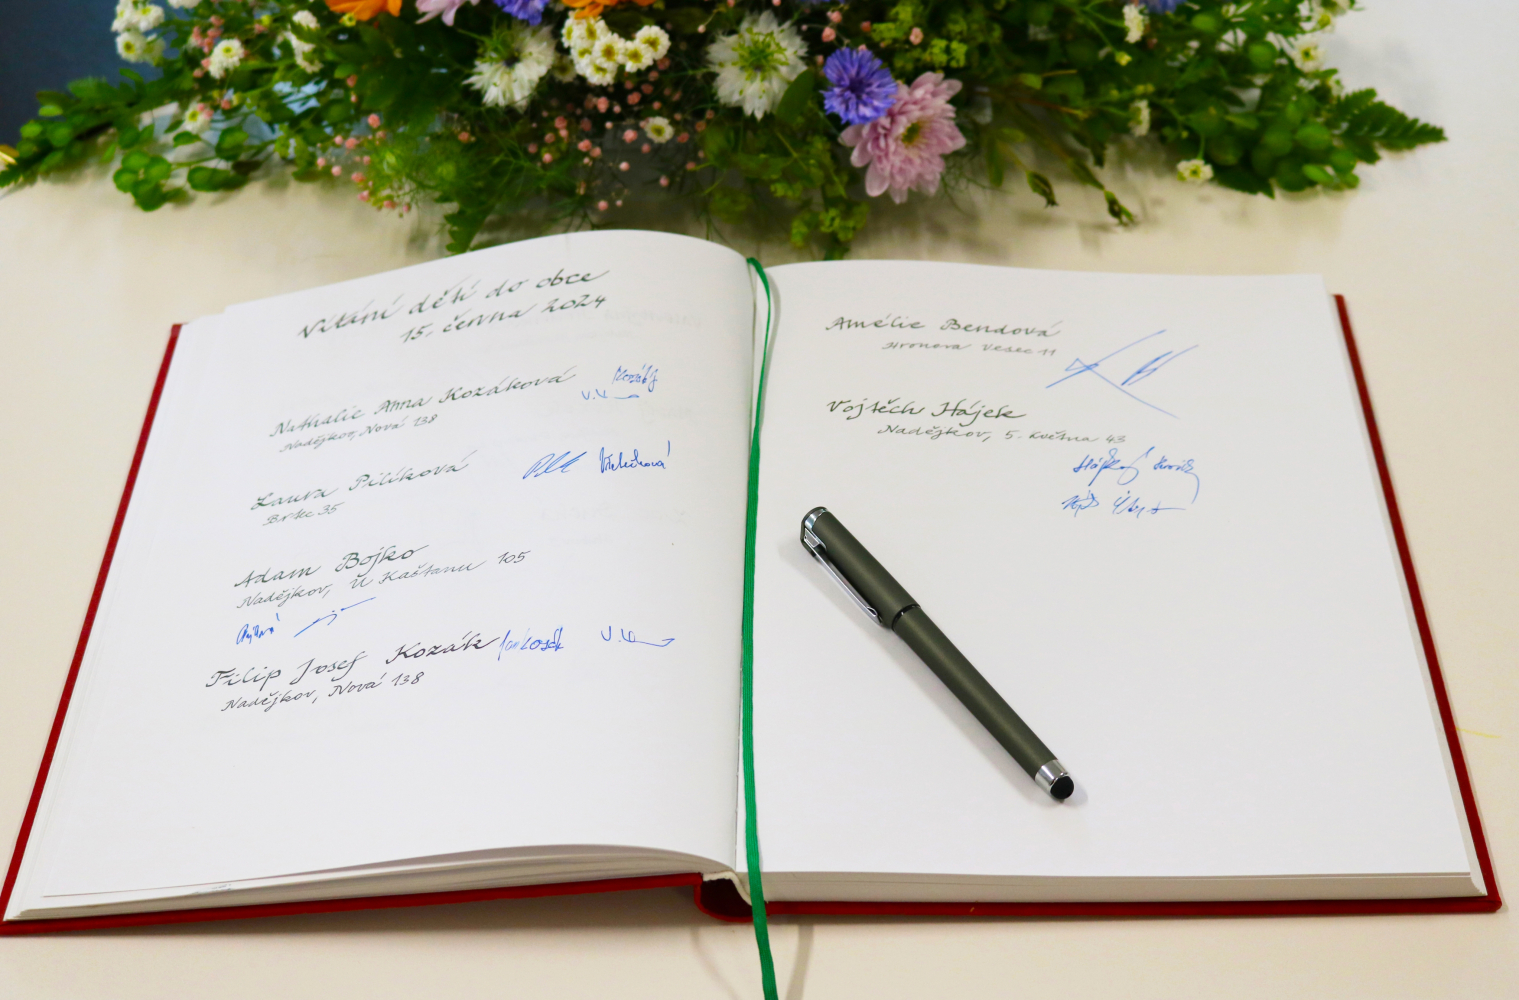 Vítání dětí do obce
15. června 2024
Nathalie Anna Kozáková
Nadějkov, Nová 138
Laura Pilíková
Brtec 35
Adam Bojko
Nadějkov, U Kaštanu 105
Filip Josef Kozák
Nadějkov, Nová 138
Amélie Bendová
Hronova Vesec 11
Vojtěch Hájek
Nadějkov, 5. května 43